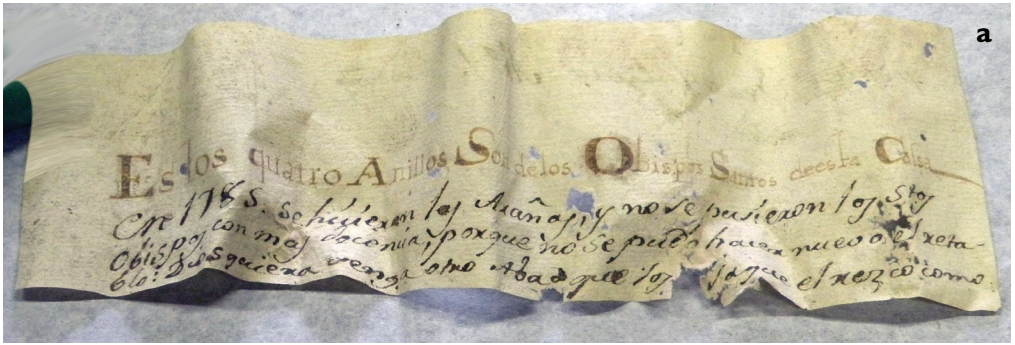 a
Estos quatro Anillos Son de los Obispos Santos de esta Cassa
En 1785. se hizieron las Arañas, y no se pusieron los Stos
Obispos con mas decencia, porque no se pudo hacer nuevo el reta-
blo. Dios quiera venga otro Abad que los el rezo como